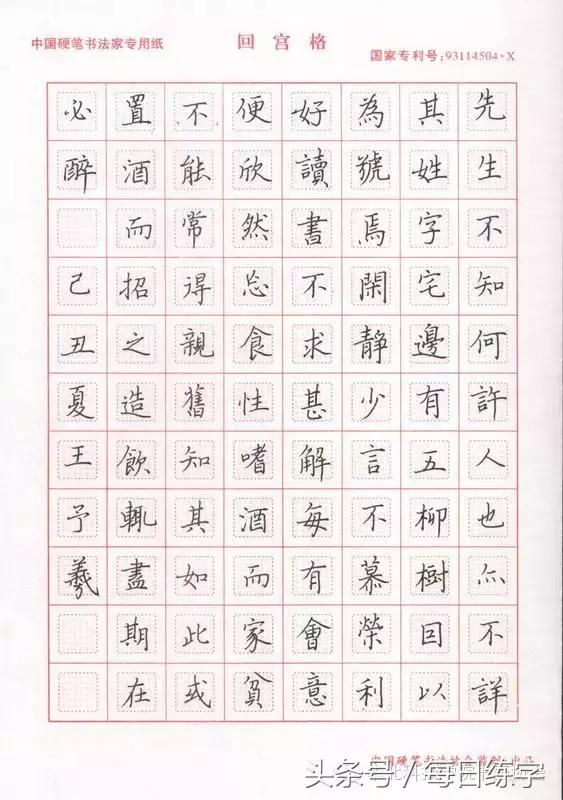 中国硬笔书法家专用纸
回宫格
国家专利号:93114504·X
先生不知何許人也亦不詳
其姓字宅邊有五柳樹囙以
為號焉閑靜少言不慕榮利
好讀書不求甚解每有會意
便欣然忘食性嗜酒而家貧
不能常得親舊知其如此或
置酒而招之造飲輒盡期在
必醉 己丑夏王予羲
中国硬笔书法协会监制
头条号/每日练字